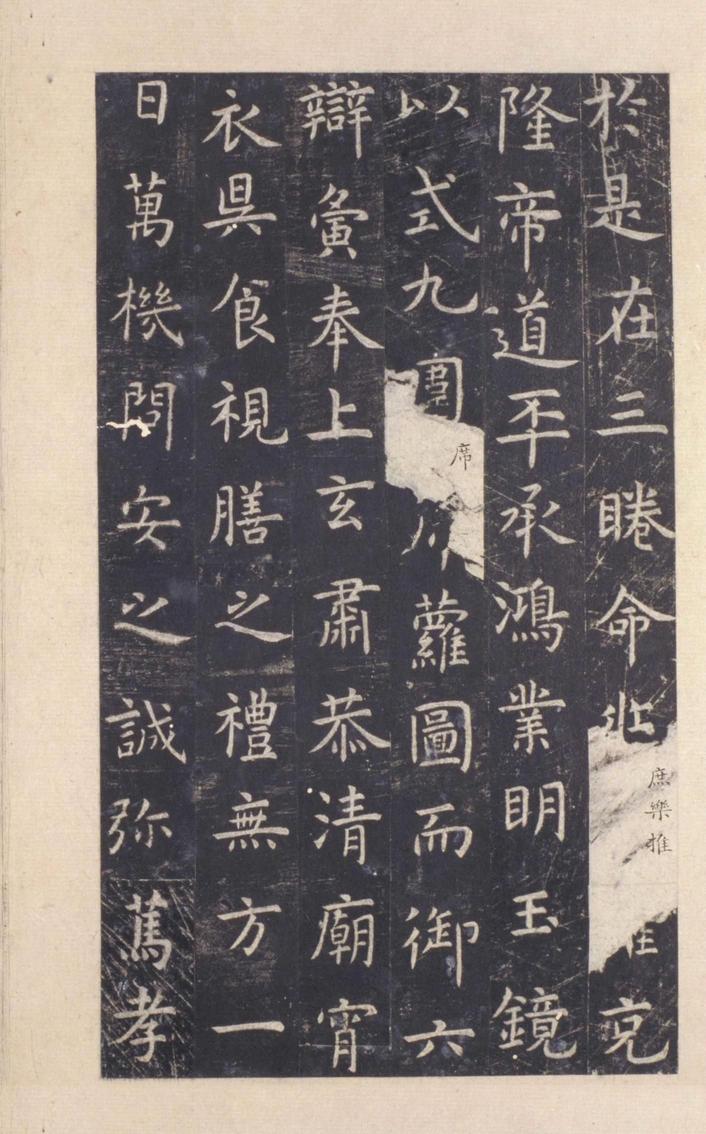 於是在三睠命兆庶樂推克
隆帝道丕承鴻業明玉鏡
以式九圍席蘿圖而御六
辯夤奉上玄肅恭清廟宵
衣昃食視膳之禮無方一
日萬機問安之誠弥篤孝